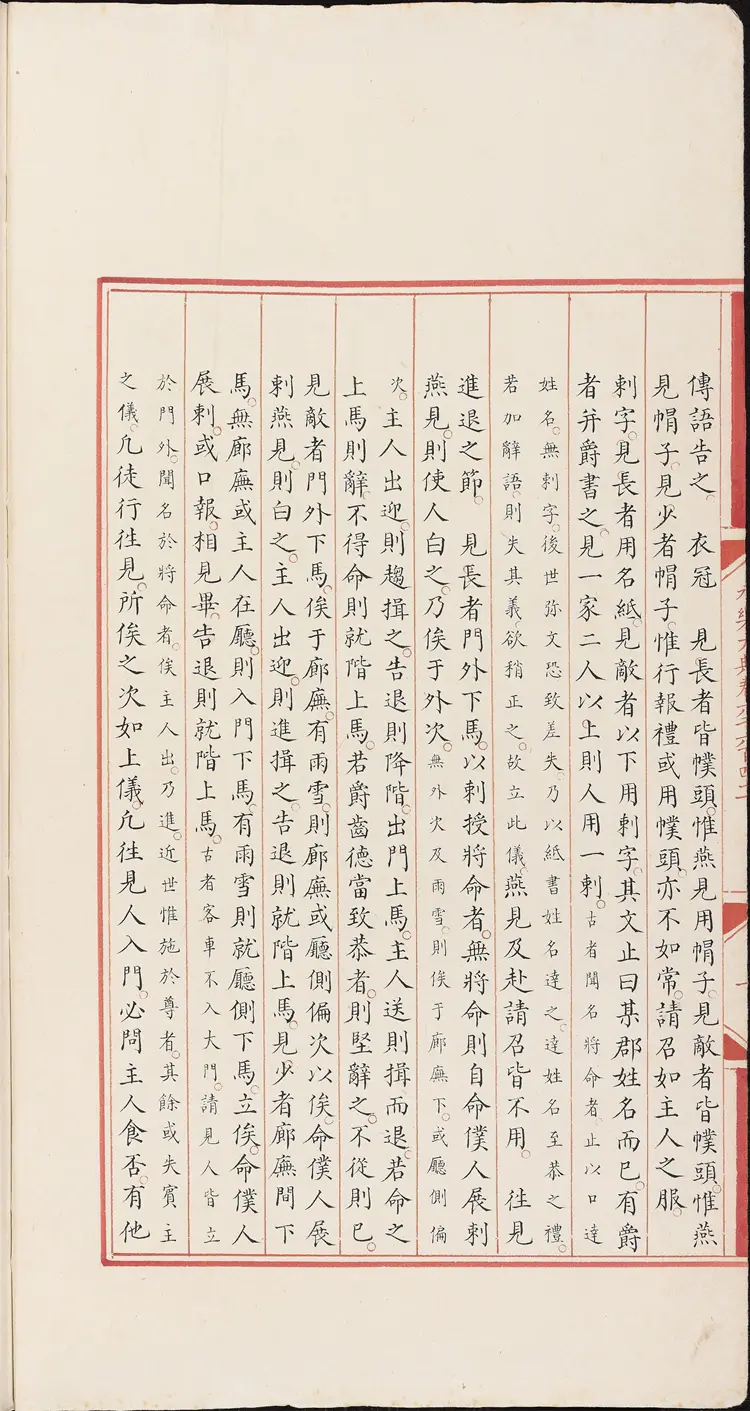 傳語告之。　衣冠　見長者皆幞頭。惟燕見用帽子。見敵者皆幞頭。惟燕
見帽子。見少者帽子。惟行報禮或用幞頭。亦不如常。請召如主人之服。
刺字。見長者用名紙。見敵者以下用刺字。其文止曰某郡姓名而已。有爵
者并爵書之。見一家二人以上則人用一刺。古者聞名將命者。止以口達
姓名。無刺字。後世弥文恐致差失。乃以紙書姓名達之。達姓名至恭之禮。
若加辭語。則失其義欲稍正之。故立此儀。燕見及赴請召皆不用。　往見
進退之節。　見長者門外下馬。以刺授將命者。無將命則自命僕人展刺
燕見。則使人白之。乃俟于外次。無外次及雨雪。則俟于廊廡下。或廳側偏
次。主人出迎。則趨揖之。告退則降階。出門上馬。主人送則揖而退。若命之
上馬則辭。不得命則就階上馬。若爵齒德當致恭者。則堅辭之。不從則已。
見敵者門外下馬。俟于廊廡。有雨雪。則廊廡或廳側偏次以俟。命僕人展
刺燕見。則白之。主人出迎。則進揖之。告退則就階上馬。見少者廊廡間下
馬。無廊廡或主人在廳。則入門下馬。有雨雪則就廳側下馬。立俟。命僕人
展刺。或口報。相見畢。告退則就階上馬。古者客車不入大門。請見人皆立
於門外。聞名於將命者。俟主人出。乃進。近世惟施於尊者。其餘或失賓主
之儀。凡徒行往見。所俟之次如上儀。凡往見人入門。必問主人食否。有他